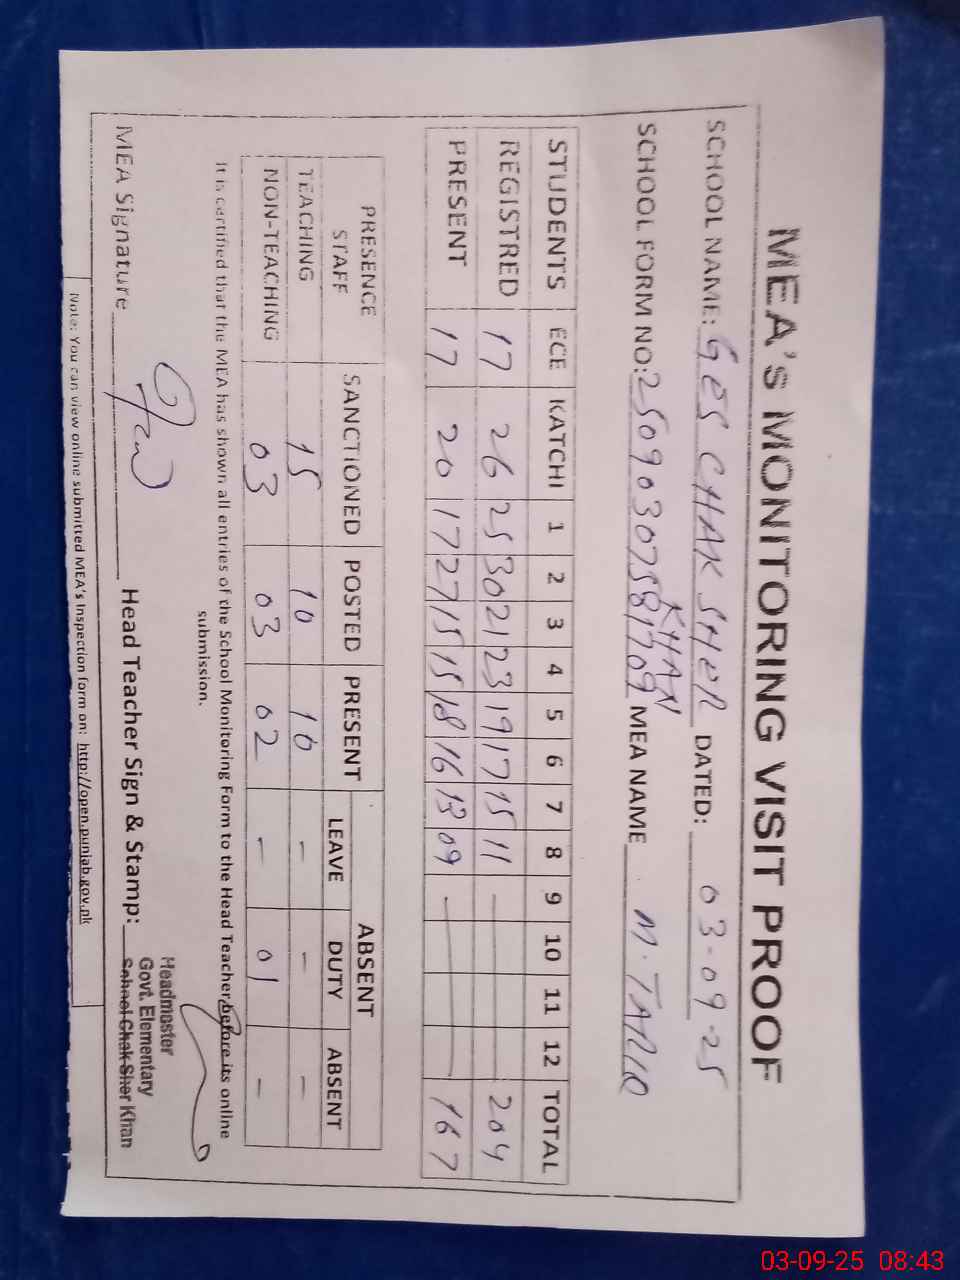 MEA'S MONITORING VISIT PROOF
SCHOOL NAME: GES CHAK SHER KHAN DATED: 03-09-25
SCHOOL FORM NO: 25090307581709 MEA NAME M. TARIQ
STUDENTS ECE KATCHI 1 2 3 4 5 6 7 8 9 10 11 12 TOTAL
REGISTRED 17 26 25 30 21 23 19 17 15 11 — 204
PRESENT 17 20 17 27 15 15 18 16 13 09 — 167
PRESENCE STAFF SANCTIONED POSTED PRESENT ABSENT
LEAVE DUTY ABSENT
TEACHING 15 10 10 - - -
NON-TEACHING 03 03 02 - 01 -
It is certified that the MEA has shown all entries of the School Monitoring Form to the Head Teacher before its online
submission.
MEA Signature Head Teacher Sign & Stamp:
Headmaster
Govt. Elementary
School Chak Sher Khan
Note: You can view online submitted MEA's Inspection form on: http://open.punjab.gov.pk
03-09-25 08:43